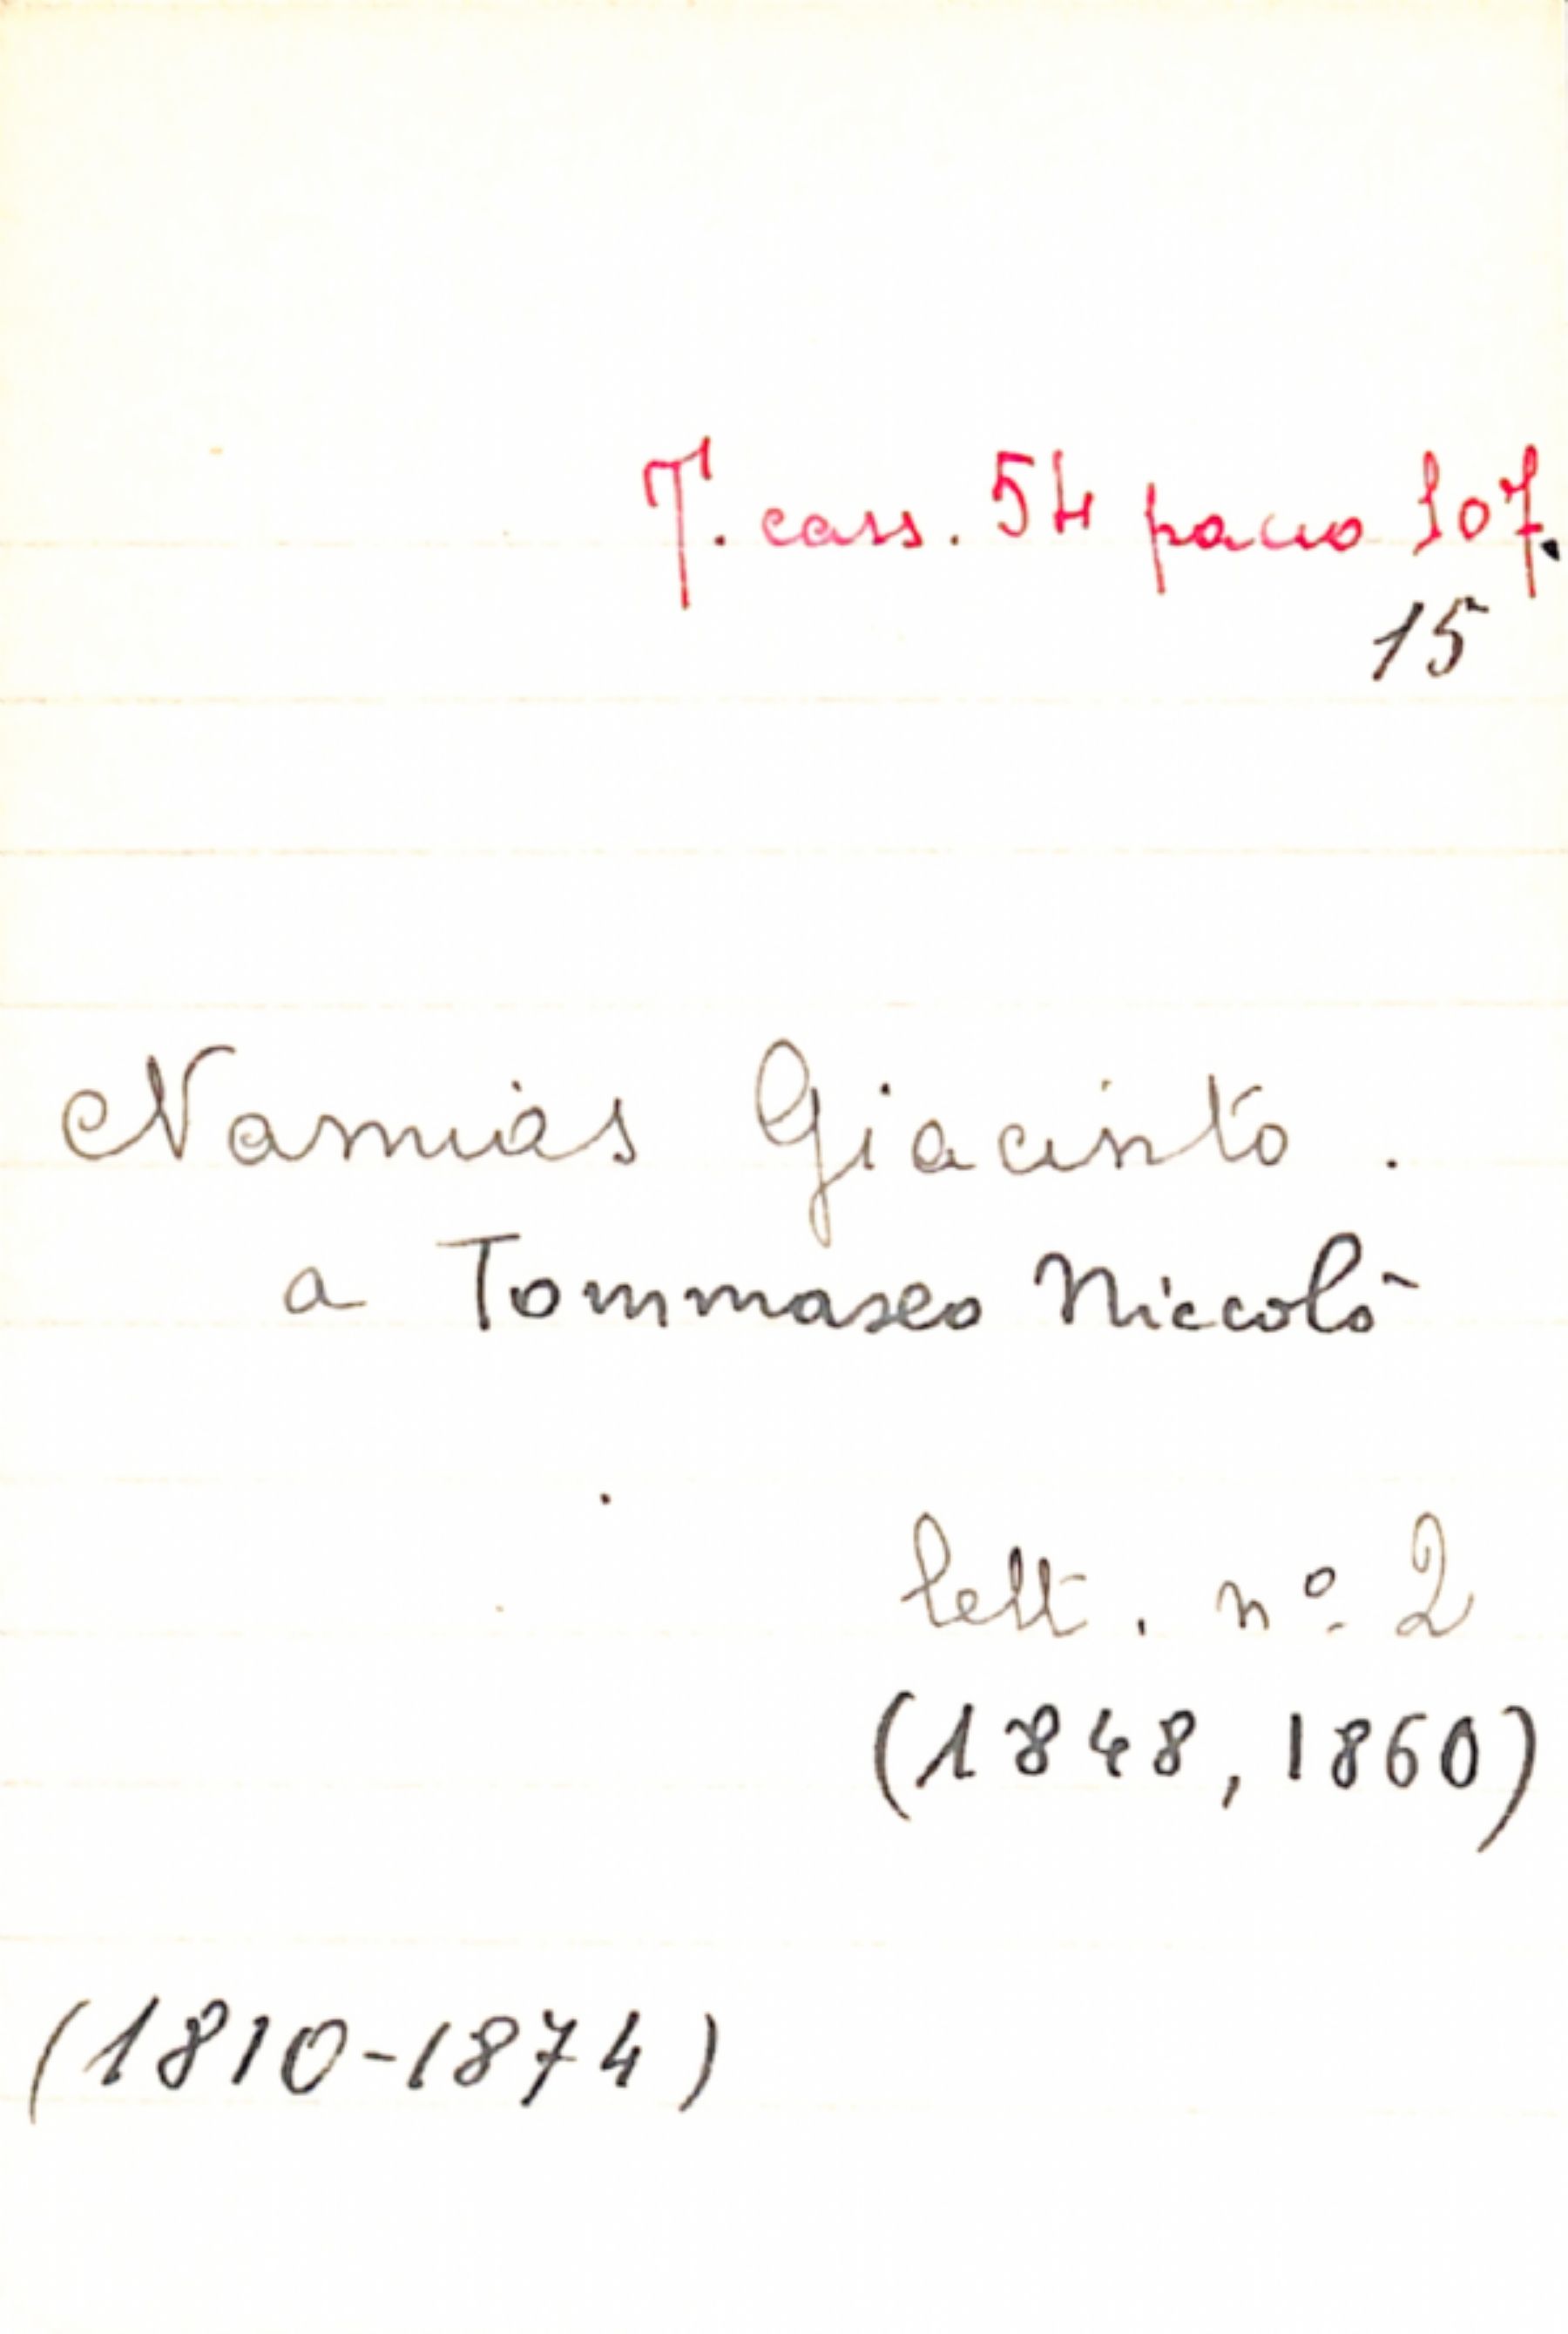 T. cass. 54 pacco 107.
15
Namias Giacinto.
a Tommaseo Niccolò
lett. nº 2
(1848, 1860)
(1810-1874)